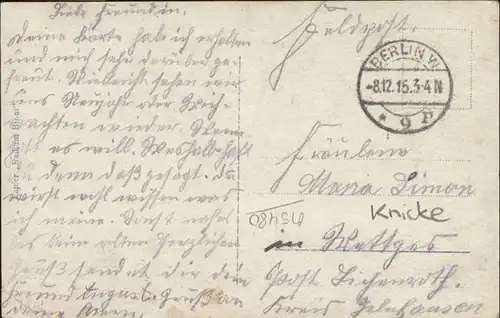 Liebe Freundin,
Deine Karte hab ich erhalten
und mich sehr darüber ge-
freut. Vielleicht sehen wir
uns Neujahr oder Weih-
nachten wieder. Wenn
es will. Weshalb hast
du denn daß gesagt. Du
wirst wohl wissen was
ich meine. Sonst
alten herzlichen
Gruß sendet dir dein
Freund August. Gruß an
deine
Feldpost.
BERLIN W.
-8.12.15.3-4N
* 9 P
Fräulein
Maria Simon
Knicke
in Wettges
Post Lichenroth.
Kreis Gelnhausen